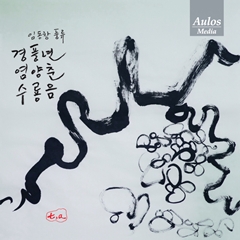 임동창 풍류
경풍년
영양춘
수룡음
Aulos
Media
t,a